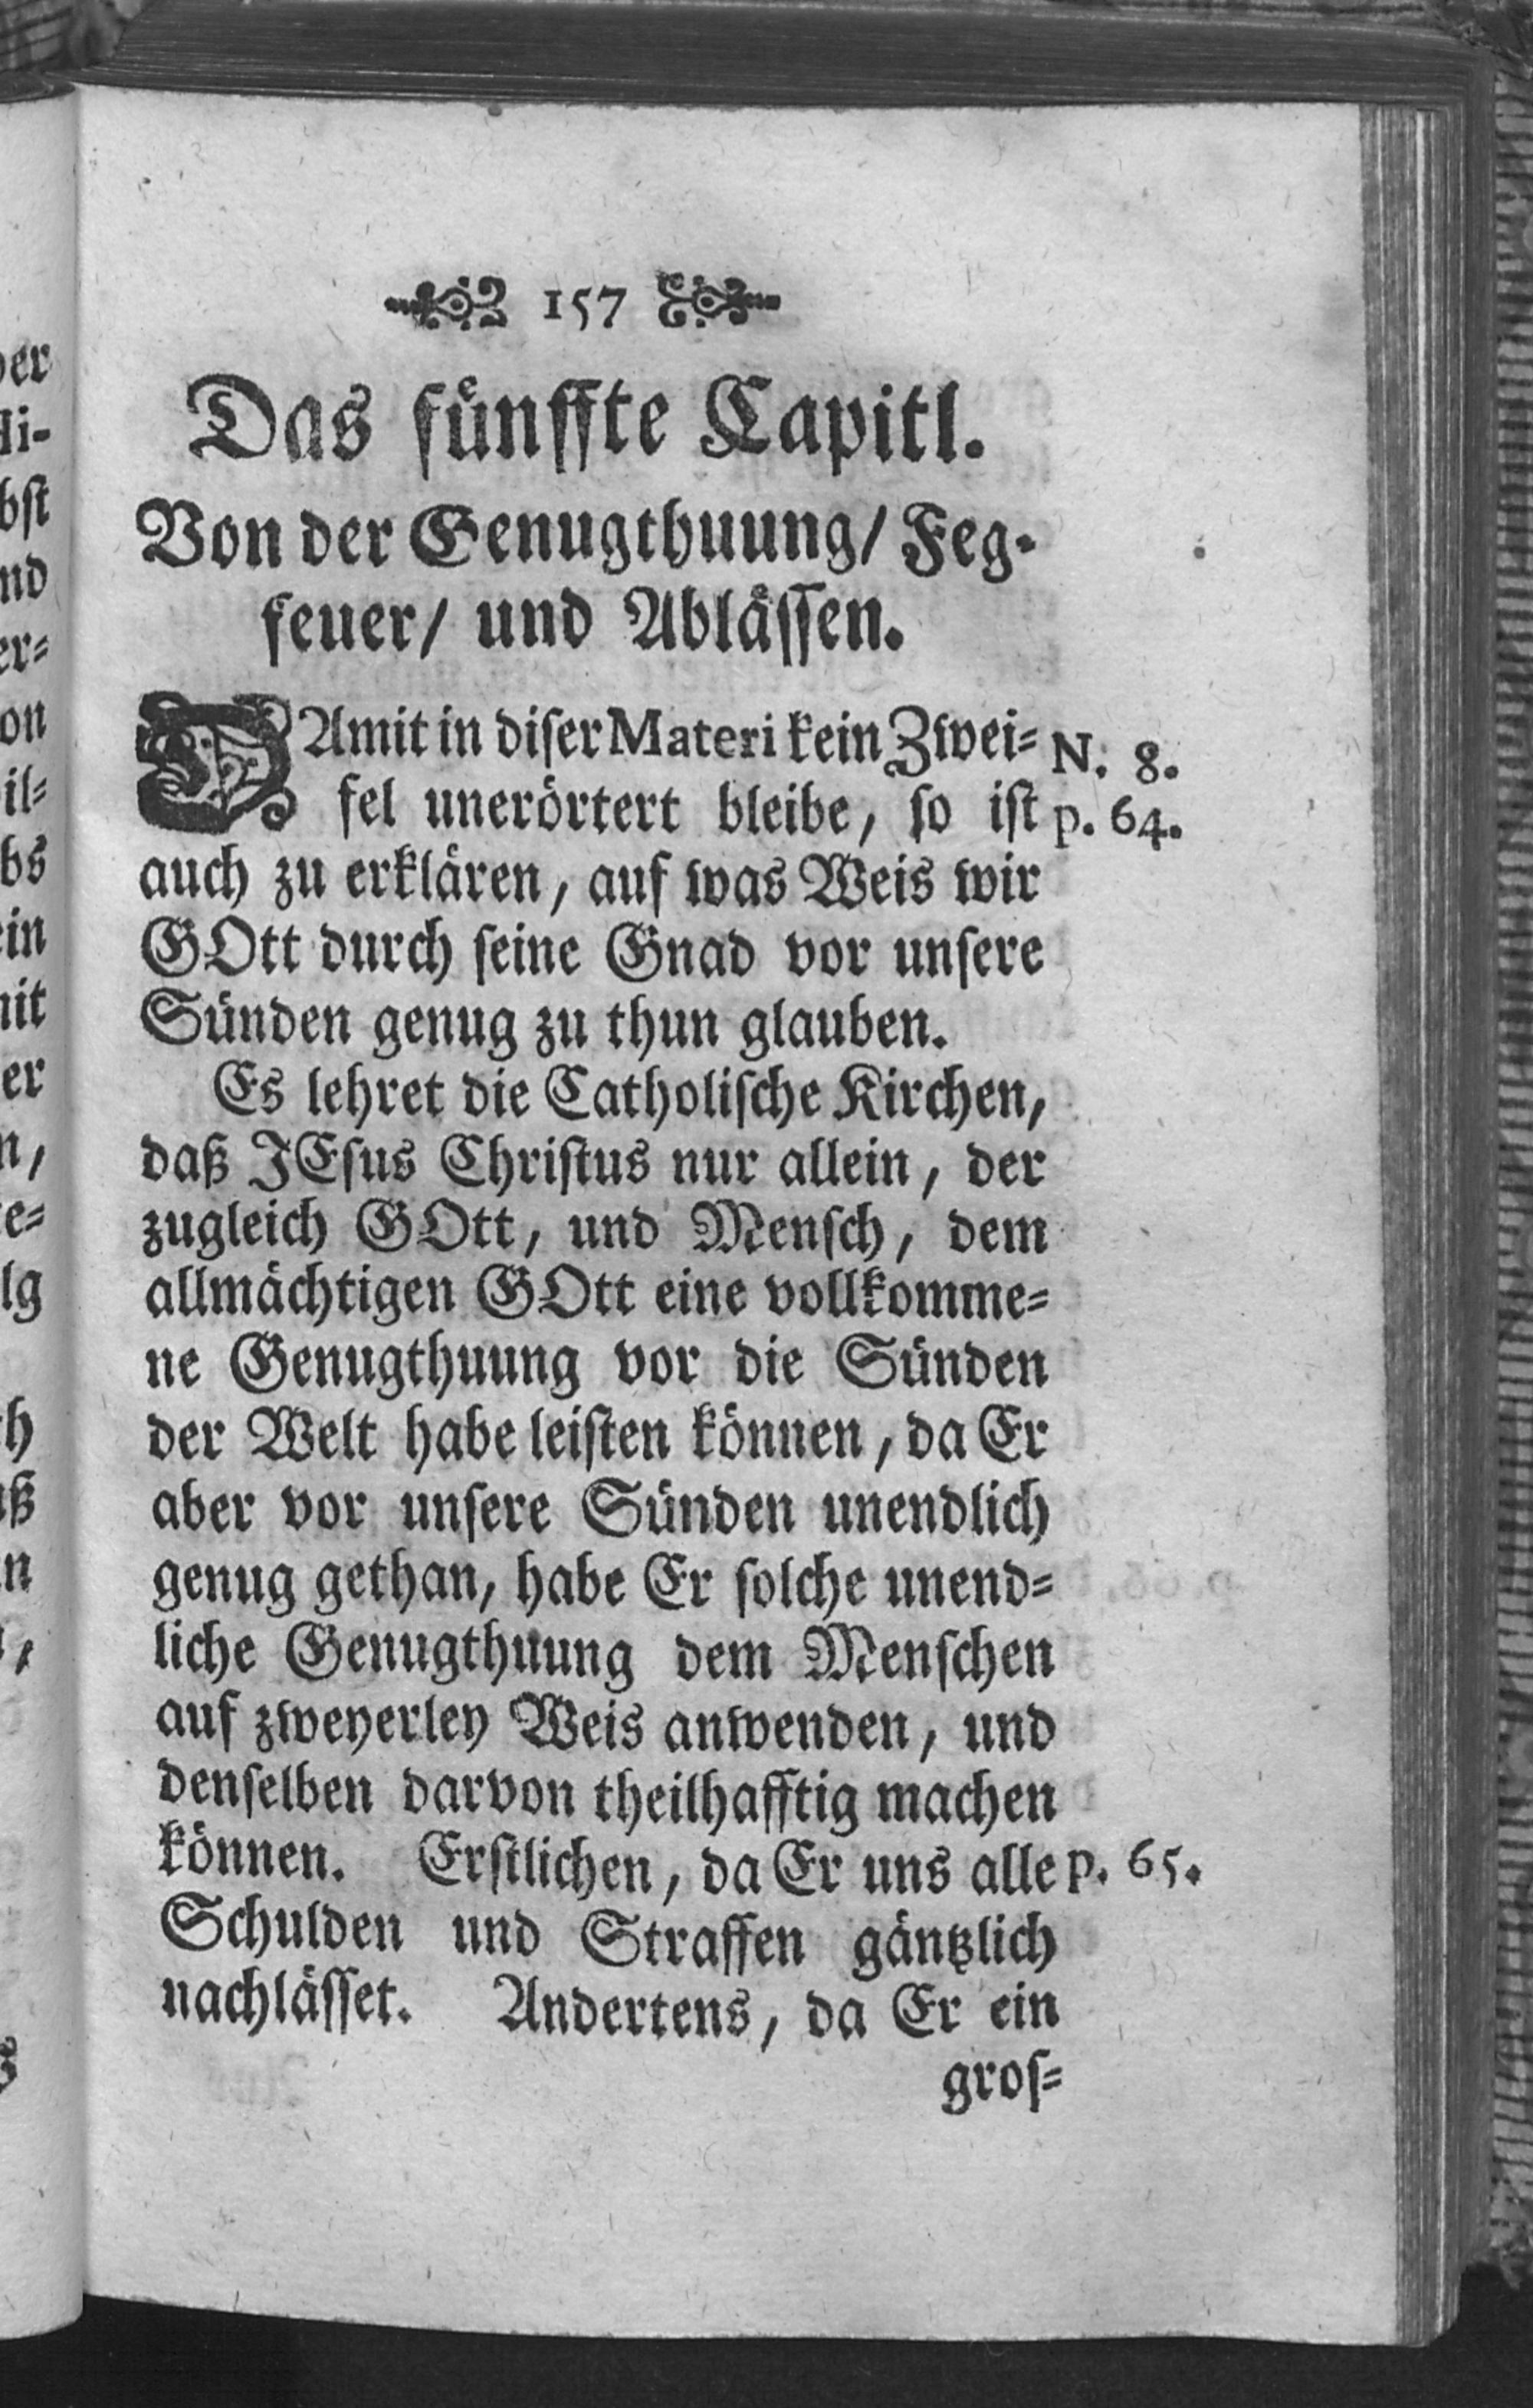 157
Das fünffte Capitl.
Von der Genugthuung/ Feg-
feuer/ und Ablässen.
DAmit in diser Materi kein Zwei- N. 8.
fel unerörtert bleibe, so ist p. 64.
auch zu erklären, auf was Weis wir
GOtt durch seine Gnad vor unsere
Sünden genug zu thun glauben.
Es lehret die Catholische Kirchen,
daß JEsus Christus nur allein, der
zugleich GOtt, und Mensch, dem
allmächtigen GOtt eine vollkomme-
ne Genugthuung vor die Sünden
der Welt habe leisten können, da Er
aber vor unsere Sünden unendlich
genug gethan, habe Er solche unend-
liche Genugthuung dem Menschen
auf zweyerley Weis anwenden, und
denselben darvon theilhafftig machen
können. Erstlichen, da Er uns alle p. 65.
Schulden und Straffen gäntzlich
nachlässet. Andertens, da Er ein
gros-